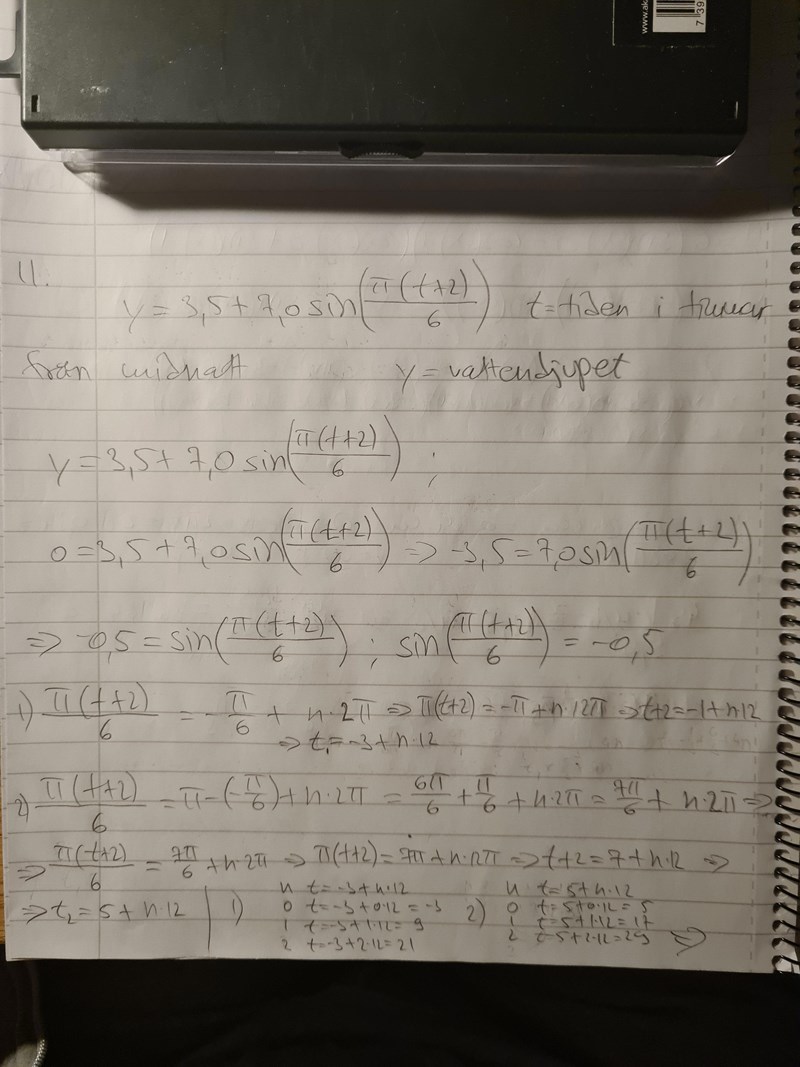 www.ak
7 39
11.
y = 3,5 + 7,0 sin(π(t+2)/6) t = tiden i timmar
från midnatt y = vattendjupet
y = 3,5 + 7,0 sin(π(t+2)/6) ;
0 = 3,5 + 7,0 sin(π(t+2)/6) ⇒ -3,5 = 7,0 sin(π(t+2)/6)
⇒ -0,5 = sin(π(t+2)/6) ; sin(π(t+2)/6) = -0,5
1) π(t+2)/6 = -π/6 + n·2π ⇒ π(t+2) = -π + n·12π ⇒ t+2 = -1 + n·12
⇒ t₁ = -3 + n·12
2) π(t+2)/6 = π - (-π/6) + n·2π = 6π/6 + π/6 + n·2π = 7π/6 + n·2π ⇒
⇒ π(t+2)/6 = 7π/6 + n·2π ⇒ π(t+2) = 7π + n·12π ⇒ t+2 = 7 + n·12 ⇒
⇒ t₂ = 5 + n·12
1) n t = -3 + n·12
0 t = -3 + 0·12 = -3
1 t = -3 + 1·12 = 9
2 t = -3 + 2·12 = 21
2) n t = 5 + n·12
0 t = 5 + 0·12 = 5
1 t = 5 + 1·12 = 17
2 t = 5 + 2·12 = 29 ⇒